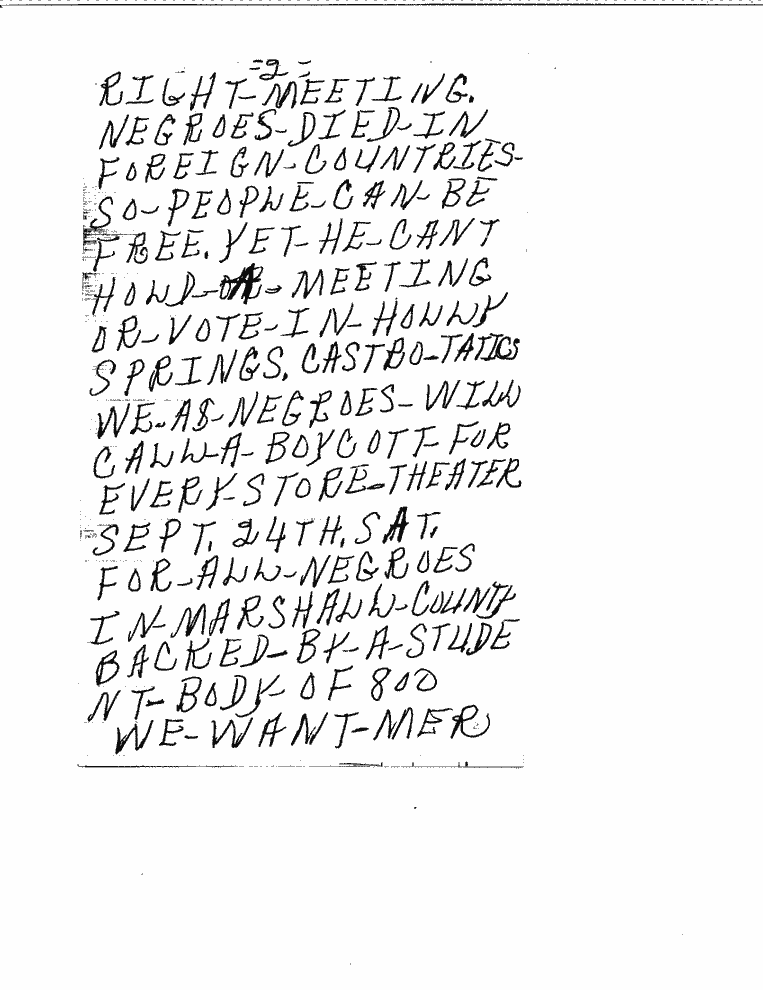 =2=
RIGHT-MEETING.
NEGROES-DIED-IN
FOREIGN-COUNTRIES-
SO-PEOPLE-CAN-BE
FREE. YET-HE-CANT
HOLD-A-MEETING
OR-VOTE-IN-HOLLY
SPRINGS. CASTRO-TATICS
WE-AS-NEGROES-WILL
CALL-A-BOYCOTT-FOR
EVERY-STORE-THEATER
SEPT. 24TH. SAT.
FOR-ALL-NEGROES
IN-MARSHALL-COUNTY
BACKED-BY-A-STUDE
NT-BODY-OF 800
WE-WANT-MER